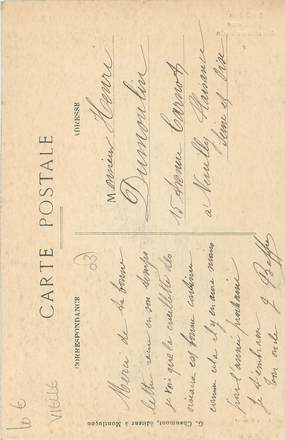 CARTE POSTALE
CORRESPONDANCE
ADRESSE
Merci de ta bonne
lettre reçue en son temps
je vois que la cueillette des
oiseaux est bonne continue
comme cela il y en aura moins
pour l'année prochaine
Je t'embrasse
ton oncle J
Monsieur Henri
Dumoulin
15 Avenue Carnot
à Neuilly Plaisance
Seine et Oise
G. Chaumont, éditeur à Montluçon
23
VIELLE